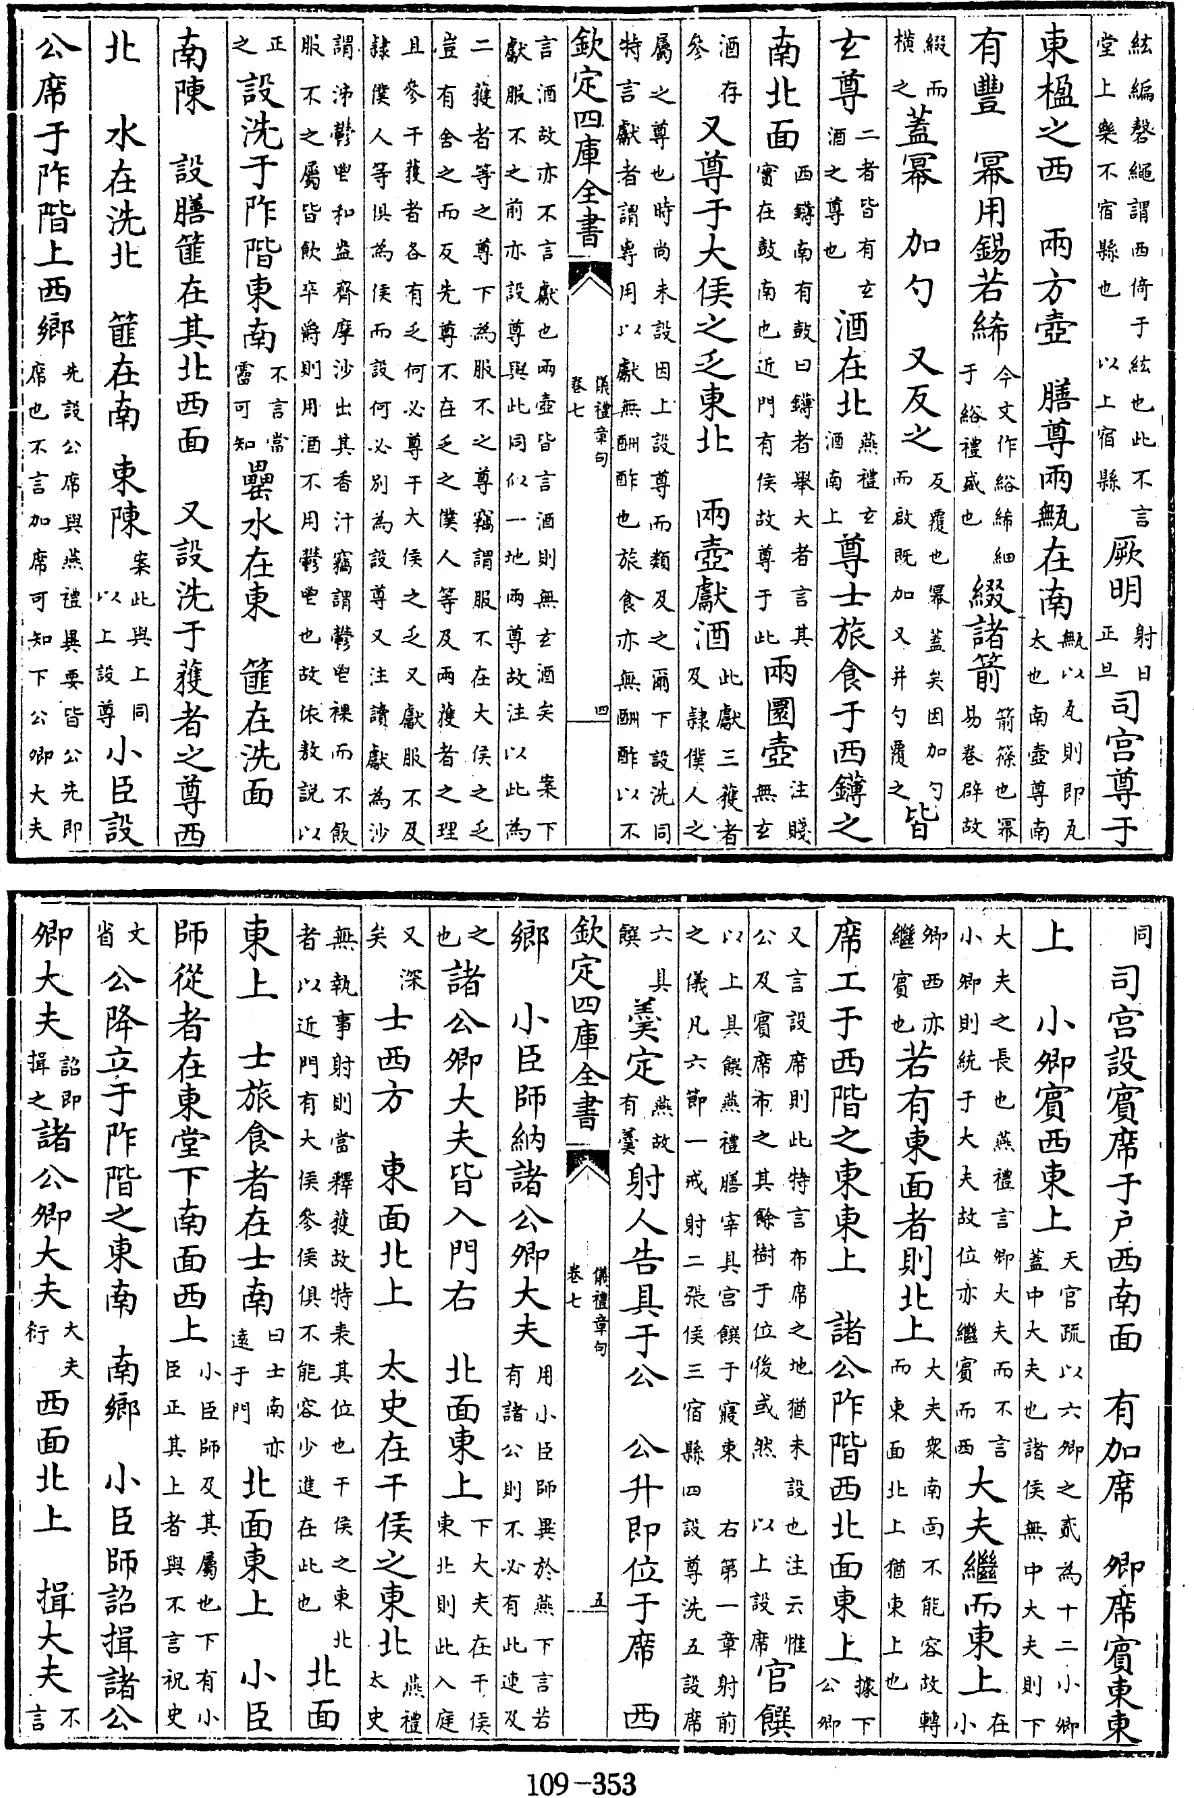 絃編磬繩謂西倚于絃也此不言
堂上樂不宿縣也 以上宿縣
厥明
射日
正旦
司宮尊于
東楹之西 兩方壺 膳尊兩甒在南
甒以瓦則即瓦
太也南壺尊南
有豐 冪用錫若絺
今文作綌絺細
于綌禮盛也
綴諸箭
箭篠也冪
易卷辟故
綴而
橫之
蓋冪 加勺 又反之
反覆也冪蓋矣因加勺
而啟既加又并勺覆之
皆
玄尊
二者皆有玄
酒之尊也
酒在北
燕禮玄
酒南上
尊士旅食于西鑮之
南北面
西鑮南有鼓曰鑮者舉大者言其
實在鼓南也近門有侯故尊于此
兩圜壺
注賤
無玄
酒存
參
又尊于大侯之乏東北 兩壺獻酒
此獻三獲者
及隸僕人之
屬之尊也時尚未設因上設尊而類及之爾下設洗同
特言獻者謂專用以獻無酬酢也旅食亦無酬酢以不
欽定四庫全書
儀禮章句
卷七
四
言酒故亦不言獻也兩壺皆言酒則無玄酒矣 案下
獻服不之前亦設尊與此同似一地兩尊故注以此為
二獲者等之尊下為服不之尊竊謂服不在大侯之乏
豈有舍之而反先尊不在乏之僕人等及兩獲者之理
且參干獲者各有乏何必尊干大侯之乏又獻服不及
隸僕人等俱為侯而設何必別為設尊又注讀獻為沙
謂泲鬱鬯和盎齊摩沙出其香汁竊謂鬱鬯祼而不飲
服不之屬皆飲卒爵則用酒不用鬱鬯也故依敖說以
正
之
設洗于阼階東南
不言當
霤可知
罍水在東 篚在洗面
南陳 設膳篚在其北西面 又設洗于獲者之尊西
北 水在洗北 篚在南 東陳
案此與上同
以上設尊
小臣設
公席于阼階上西鄉
先設公席與燕禮異要皆公先即
席也不言加席可知下公卿大夫
同
司宮設賓席于戶西南面 有加席 卿席賓東東
上 小卿賓西東上
天官疏以六卿之貳為十二小卿
蓋中大夫也諸侯無中大夫則下
大夫之長也燕禮言卿大夫而不言
小卿則統于大夫故位亦繼賓而西
大夫繼而東上
在
小
卿西亦
繼賓也
若有東面者則北上
大夫眾南面不能容故轉
而東面北上猶東上也
席工于西階之東東上 諸公阼階西北面東上
據下
公卿
又言設席則此特言布席之地猶未設也注云惟
公及賓席布之其餘樹于位後或然 以上設席
官饌
以上具饌燕禮膳宰具官饌于寢東 右第一章射前
之儀凡六節一戒射二張侯三宿縣四設尊洗五設席
六具
饌
羹定
燕故
有羹
射人告具于公 公升即位于席 西
欽定四庫全書
儀禮章句
卷七
五
鄉 小臣師納諸公卿大夫
用小臣師異於燕下言若
有諸公則不必有此連及
之
也
諸公卿大夫皆入門右 北面東上
下大夫在干侯
東北則此入庭
又深
矣
士西方 東面北上 太史在干侯之東北
燕禮
太史
無執事射則當釋獲故特表其位也干侯之東北
者以近門有大侯參侯俱不能容少進在此也
北面
東上 士旅食者在士南
曰士南亦
遠于門
北面東上 小臣
師從者在東堂下南面西上
小臣師及其屬也下有小
臣正其上者與不言祝史
文
省
公降立于阼階之東南 南鄉 小臣師詔揖諸公
卿大夫
詔即
揖之
諸公卿大夫
大夫
衍
西面北上 揖大夫
不
言
109-353